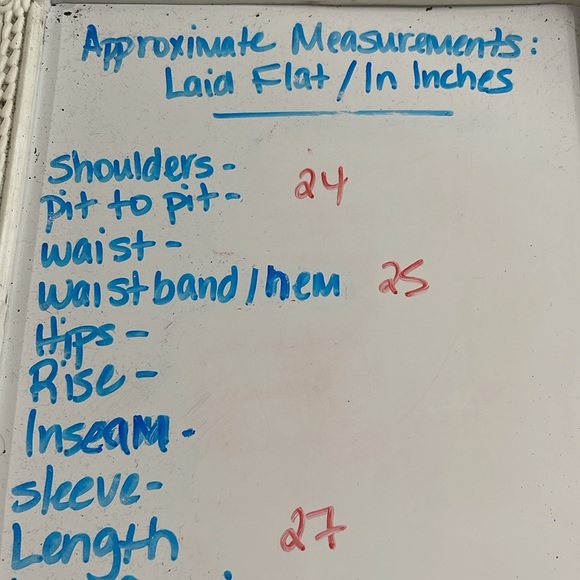 Approximate Measurements:
Laid Flat/In Inches
Shoulders-
pit to pit- 24
waist-
waistband/hem 25
Hips-
Rise-
Inseam-
sleeve-
Length 27